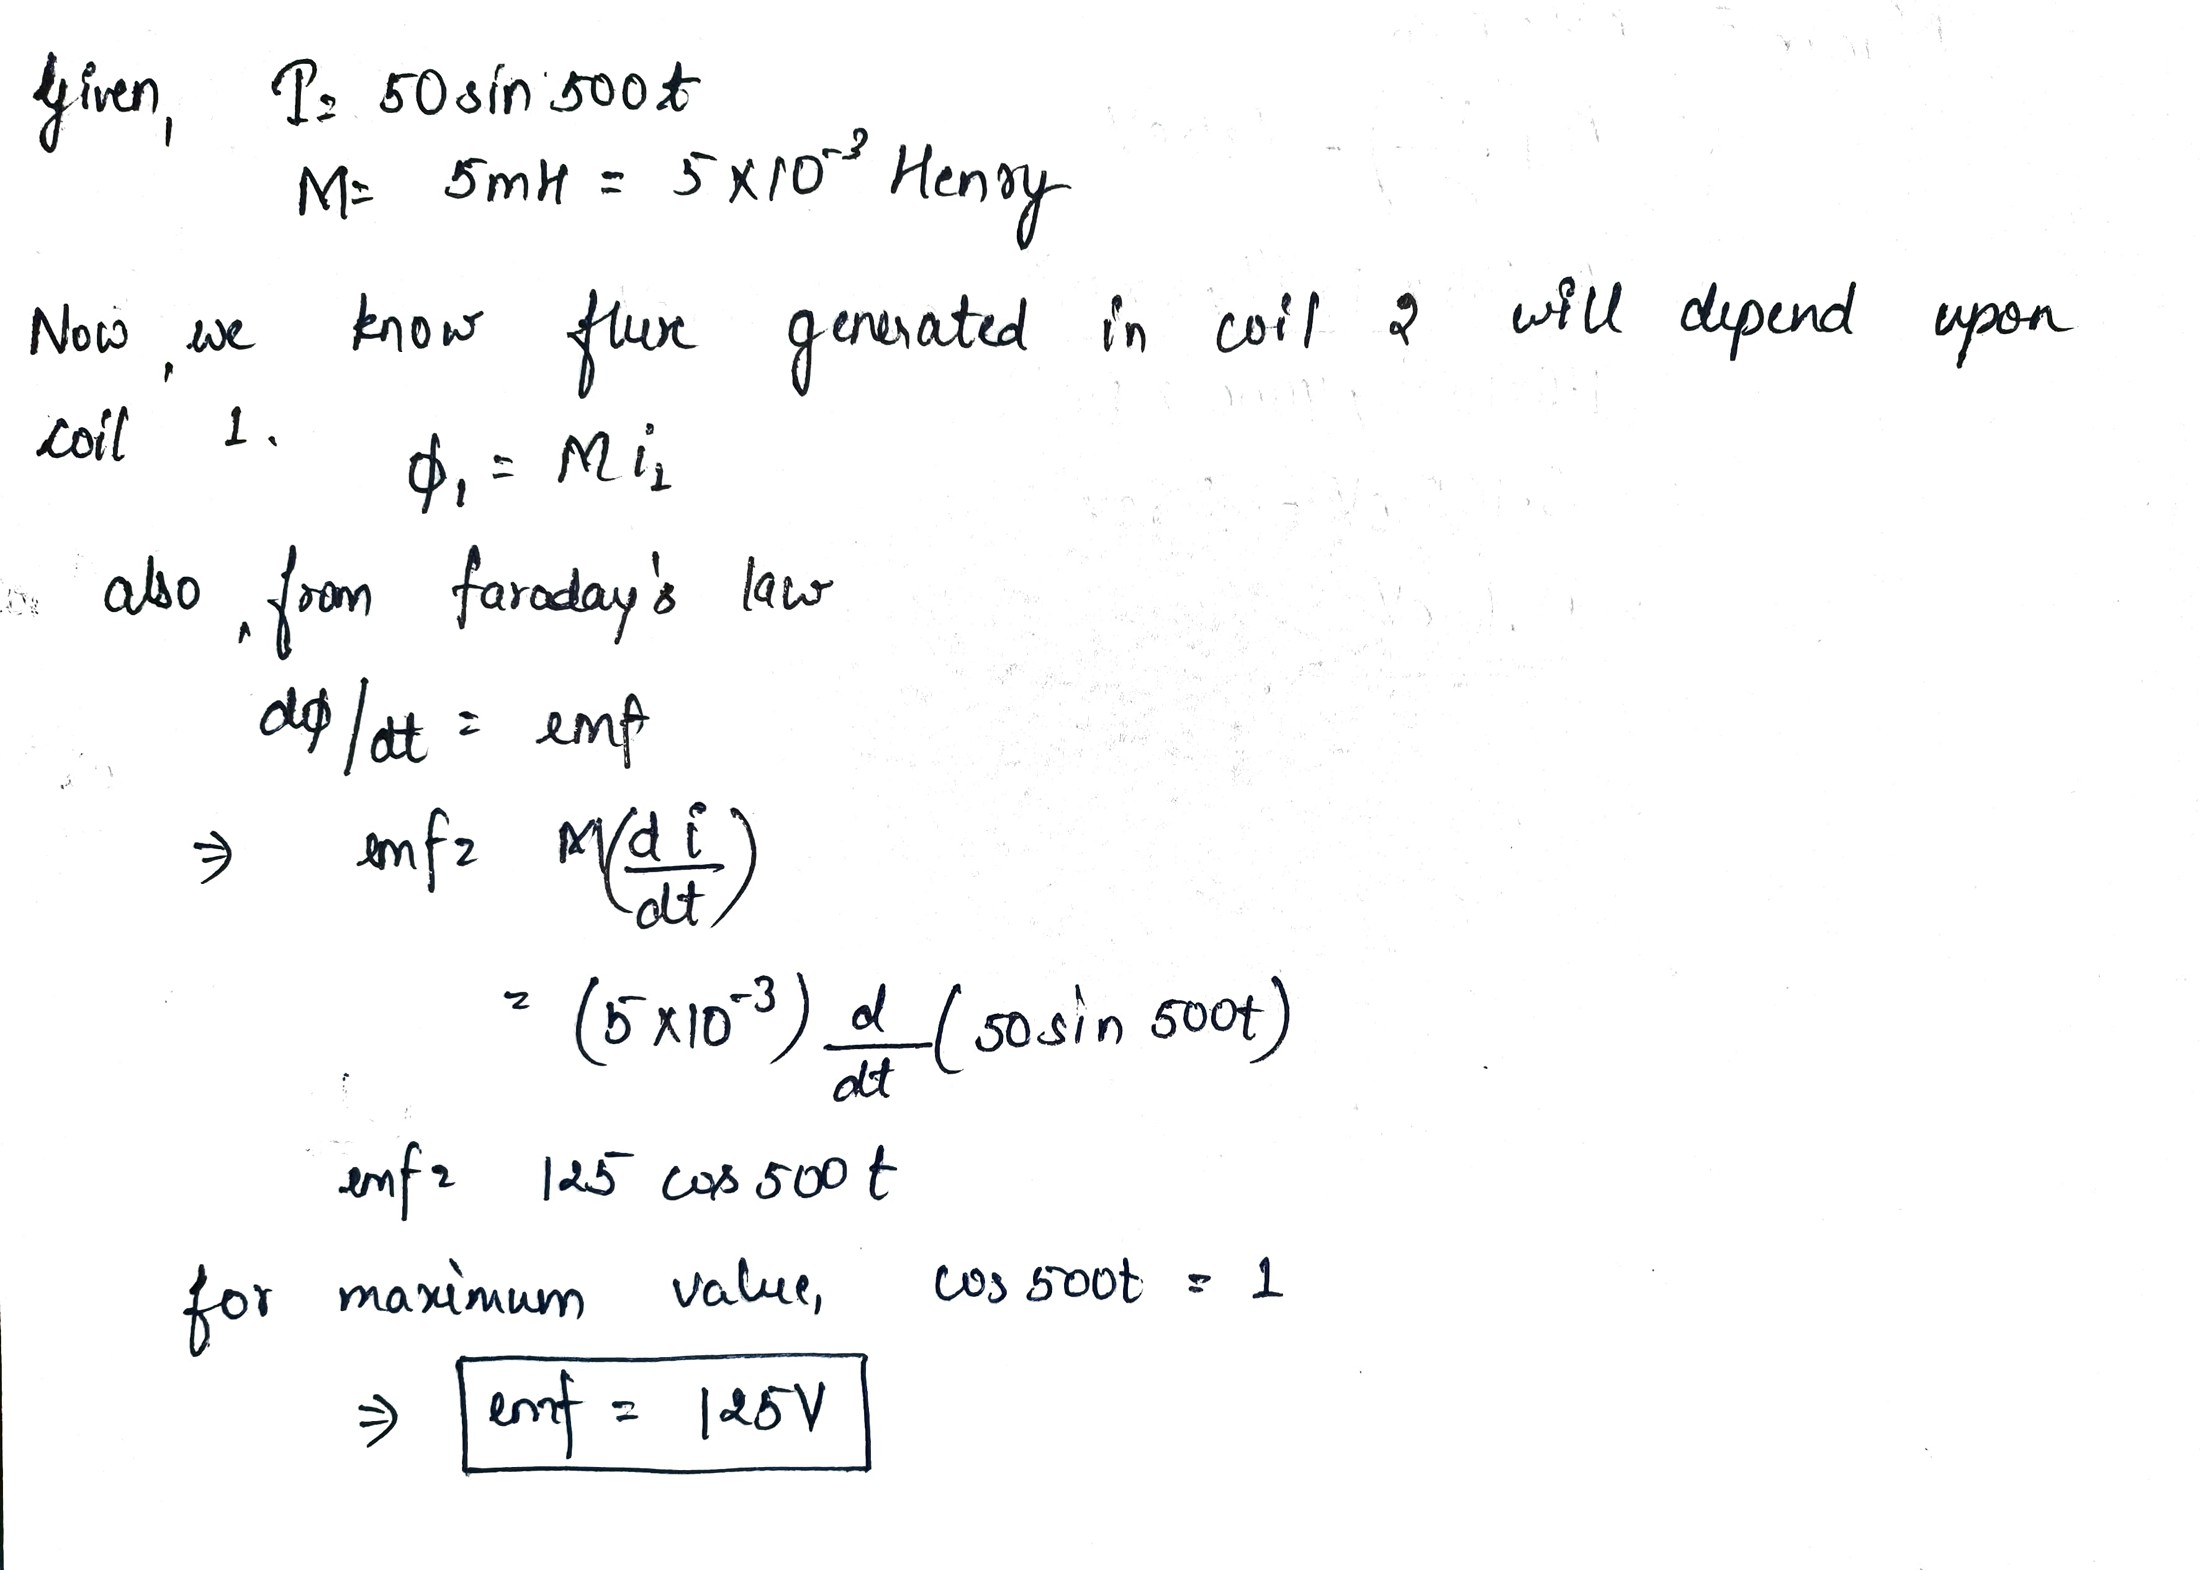 Given, I= 50 sin 500t
M= 5mH = 5×10⁻³ Henry
Now, we know flux generated in coil 2 will depend upon
coil 1.
ϕ₁ = M i₁
also, from faraday's law
dϕ/dt = emf
⇒ emf = M(di/dt)
= (5×10⁻³) d/dt (50 sin 500t)
emf = 125 cos 500t
for maximum value, cos 500t = 1
⇒ emf = 125V